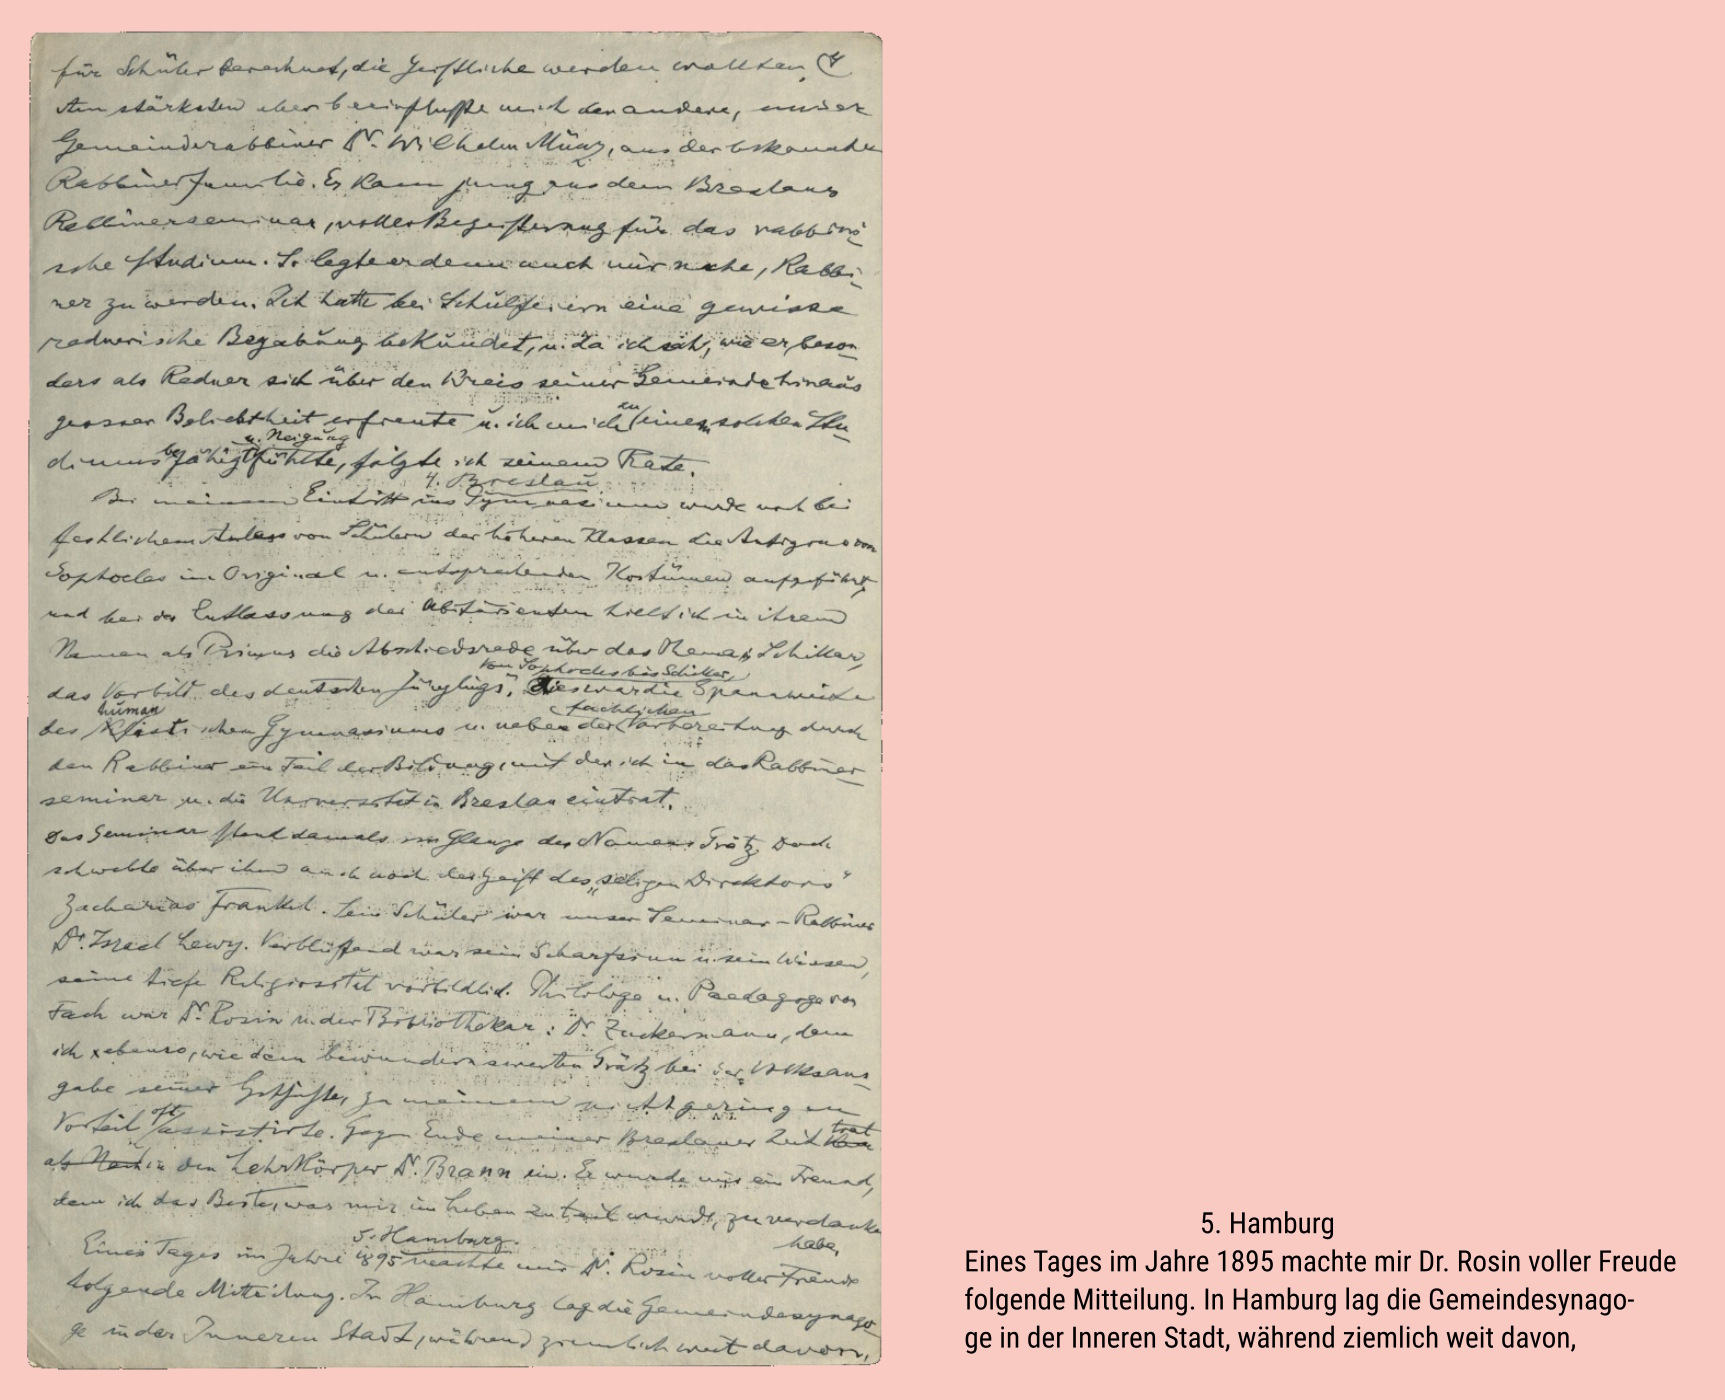 für Schüler berechnet, die Geistliche werden wollten. 4
Am stärksten aber beeinflusste mich der andere, unser
Gemeinderabbiner Dr. Wilhelm Münz, aus der bekannten
Rabbinerfamilie. Er kam jung aus dem Breslauer
Rabbinerseminar, voller Begeisterung für das rabbini-
sche Studium. So legte er denn auch mir nahe, Rabbi-
ner zu werden. Ich hatte bei Schulfeiern eine gewisse
rednerische Begabung bekundet, u. da ich sah, wie er beson-
ders als Redner sich über den Kreis seiner Gemeinde hinaus
grosser Beliebtheit erfreute u. ich mich zu einem solchen Stu-
dium befähigt u. Neigung fühlte, folgte ich seinem Rate.
4. Breslau
Bei meinem Eintritt ins Gymnasium wurde noch bei
festlichem Anlass von Schülern der höheren Klassen die Antigone von
Sophocles im Original u. entsprechenden Kostümen aufgeführt,
und bei der Entlassung der Abiturienten hielt ich in ihrem
Namen als Primus die Abschiedsrede über das Thema: Schiller,
das Vorbild des deutschen Jünglings". Von Sophocles bis Schiller, dies war die Spannweite
des humanistischen Gymnasiums u. neben der fachlichen Vorbereitung durch
den Rabbiner ein Teil der Bildung, mit der ich in das Rabbiner-
seminar u. die Universität in Breslau eintrat.
Das Seminar stand damals im Glanze des Namens Grätz. Doch
schwebte über ihm auch noch der Geist des „seligen Direktors"
Zacharias Frankel. Sein Schüler war unser Seminar-Rabbiner
Dr. Israel Lewy. Verblüffend war sein Scharfsinn u. sein Wissen,
seine tiefe Religiosität vorbildlich. Philologe u. Paedagoge von
Fach war Dr. Rosin u. der Bibliothekar: Dr. Zuckermann, dem
ich ebenso, wie dem bewundernswerten Grätz bei der Volksaus-
gabe seiner Geschichte, zu meinem nicht geringen
Vorteil oft assistirte. Gegen Ende meiner Breslauer Zeit trat
als in den Lehrkörper Dr. Brann ein. Er wurde mir ein Freund,
dem ich das Beste, was mir im Leben zuteil wurde, zu verdanken
habe.
5. Hamburg.
Eines Tages im Jahre 1895 machte mir Dr. Rosin voller Freude
folgende Mitteilung. In Hamburg lag die Gemeindesynago-
ge in der Inneren Stadt, während ziemlich weit davon,
5. Hamburg
Eines Tages im Jahre 1895 machte mir Dr. Rosin voller Freude
folgende Mitteilung. In Hamburg lag die Gemeindesynago-
ge in der Inneren Stadt, während ziemlich weit davon,